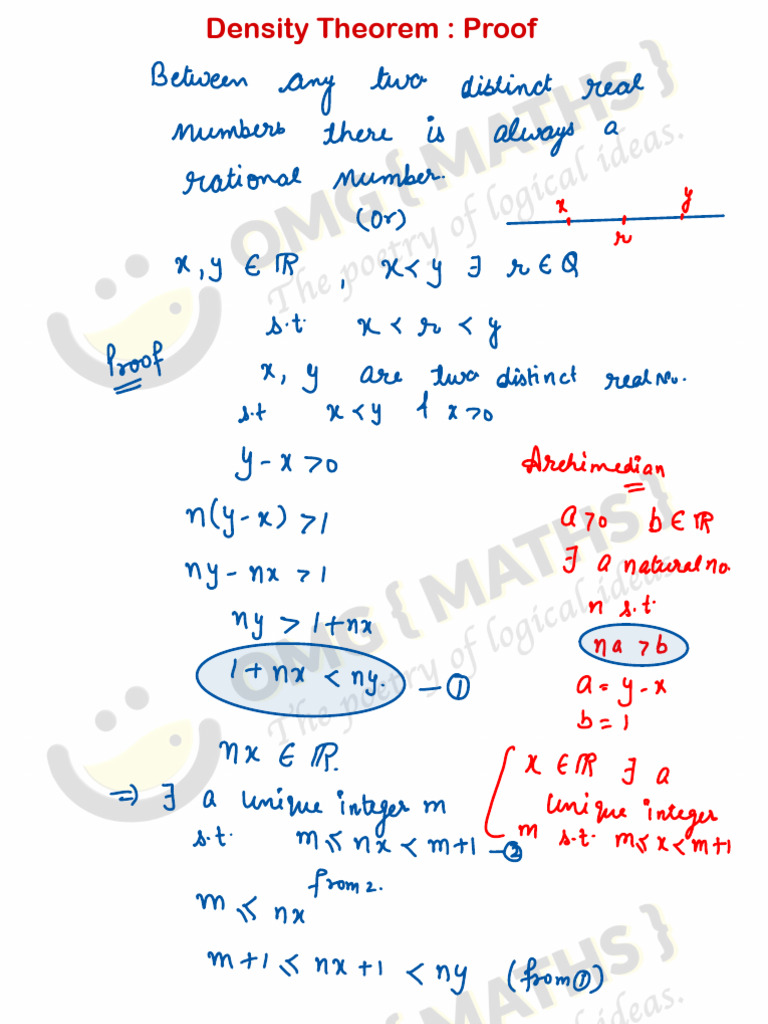 Density Theorem : Proof
Between any two distinct real
numbers there is always a
rational number.
(Or)
x y
r
x, y ∈ ℝ , x < y ∃ r ∈ Q
s.t. x < r < y
Proof
x, y are two distinct real no.
s.t x < y & x > 0
y - x > 0
n(y - x) > 1
ny - nx > 1
ny > 1 + nx
1 + nx < ny. — ①
Archimedian
a > 0 b ∈ ℝ
∃ a natural no.
n s.t.
na > b
a = y - x
b = 1
nx ∈ ℝ.
⇒ ∃ a unique integer m
s.t. m ≤ nx < m+1 — ②
x ∈ ℝ ∃ a
unique integer
m s.t. m ≤ x < m+1
from 2.
m ≤ nx
m+1 ≤ nx+1 < ny (from ①)
OMG { MATHS }
The poetry of logical ideas.
OMG { MATHS }
The poetry of logical ideas.
OMG { MATHS }
The poetry of logical ideas.